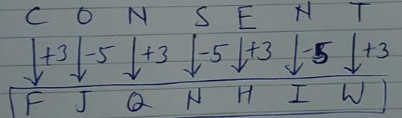 C O N S E N T
↓+3 ↓-5 ↓+3 ↓-5 ↓+3 ↓-5 ↓+3
F J Q N H I W